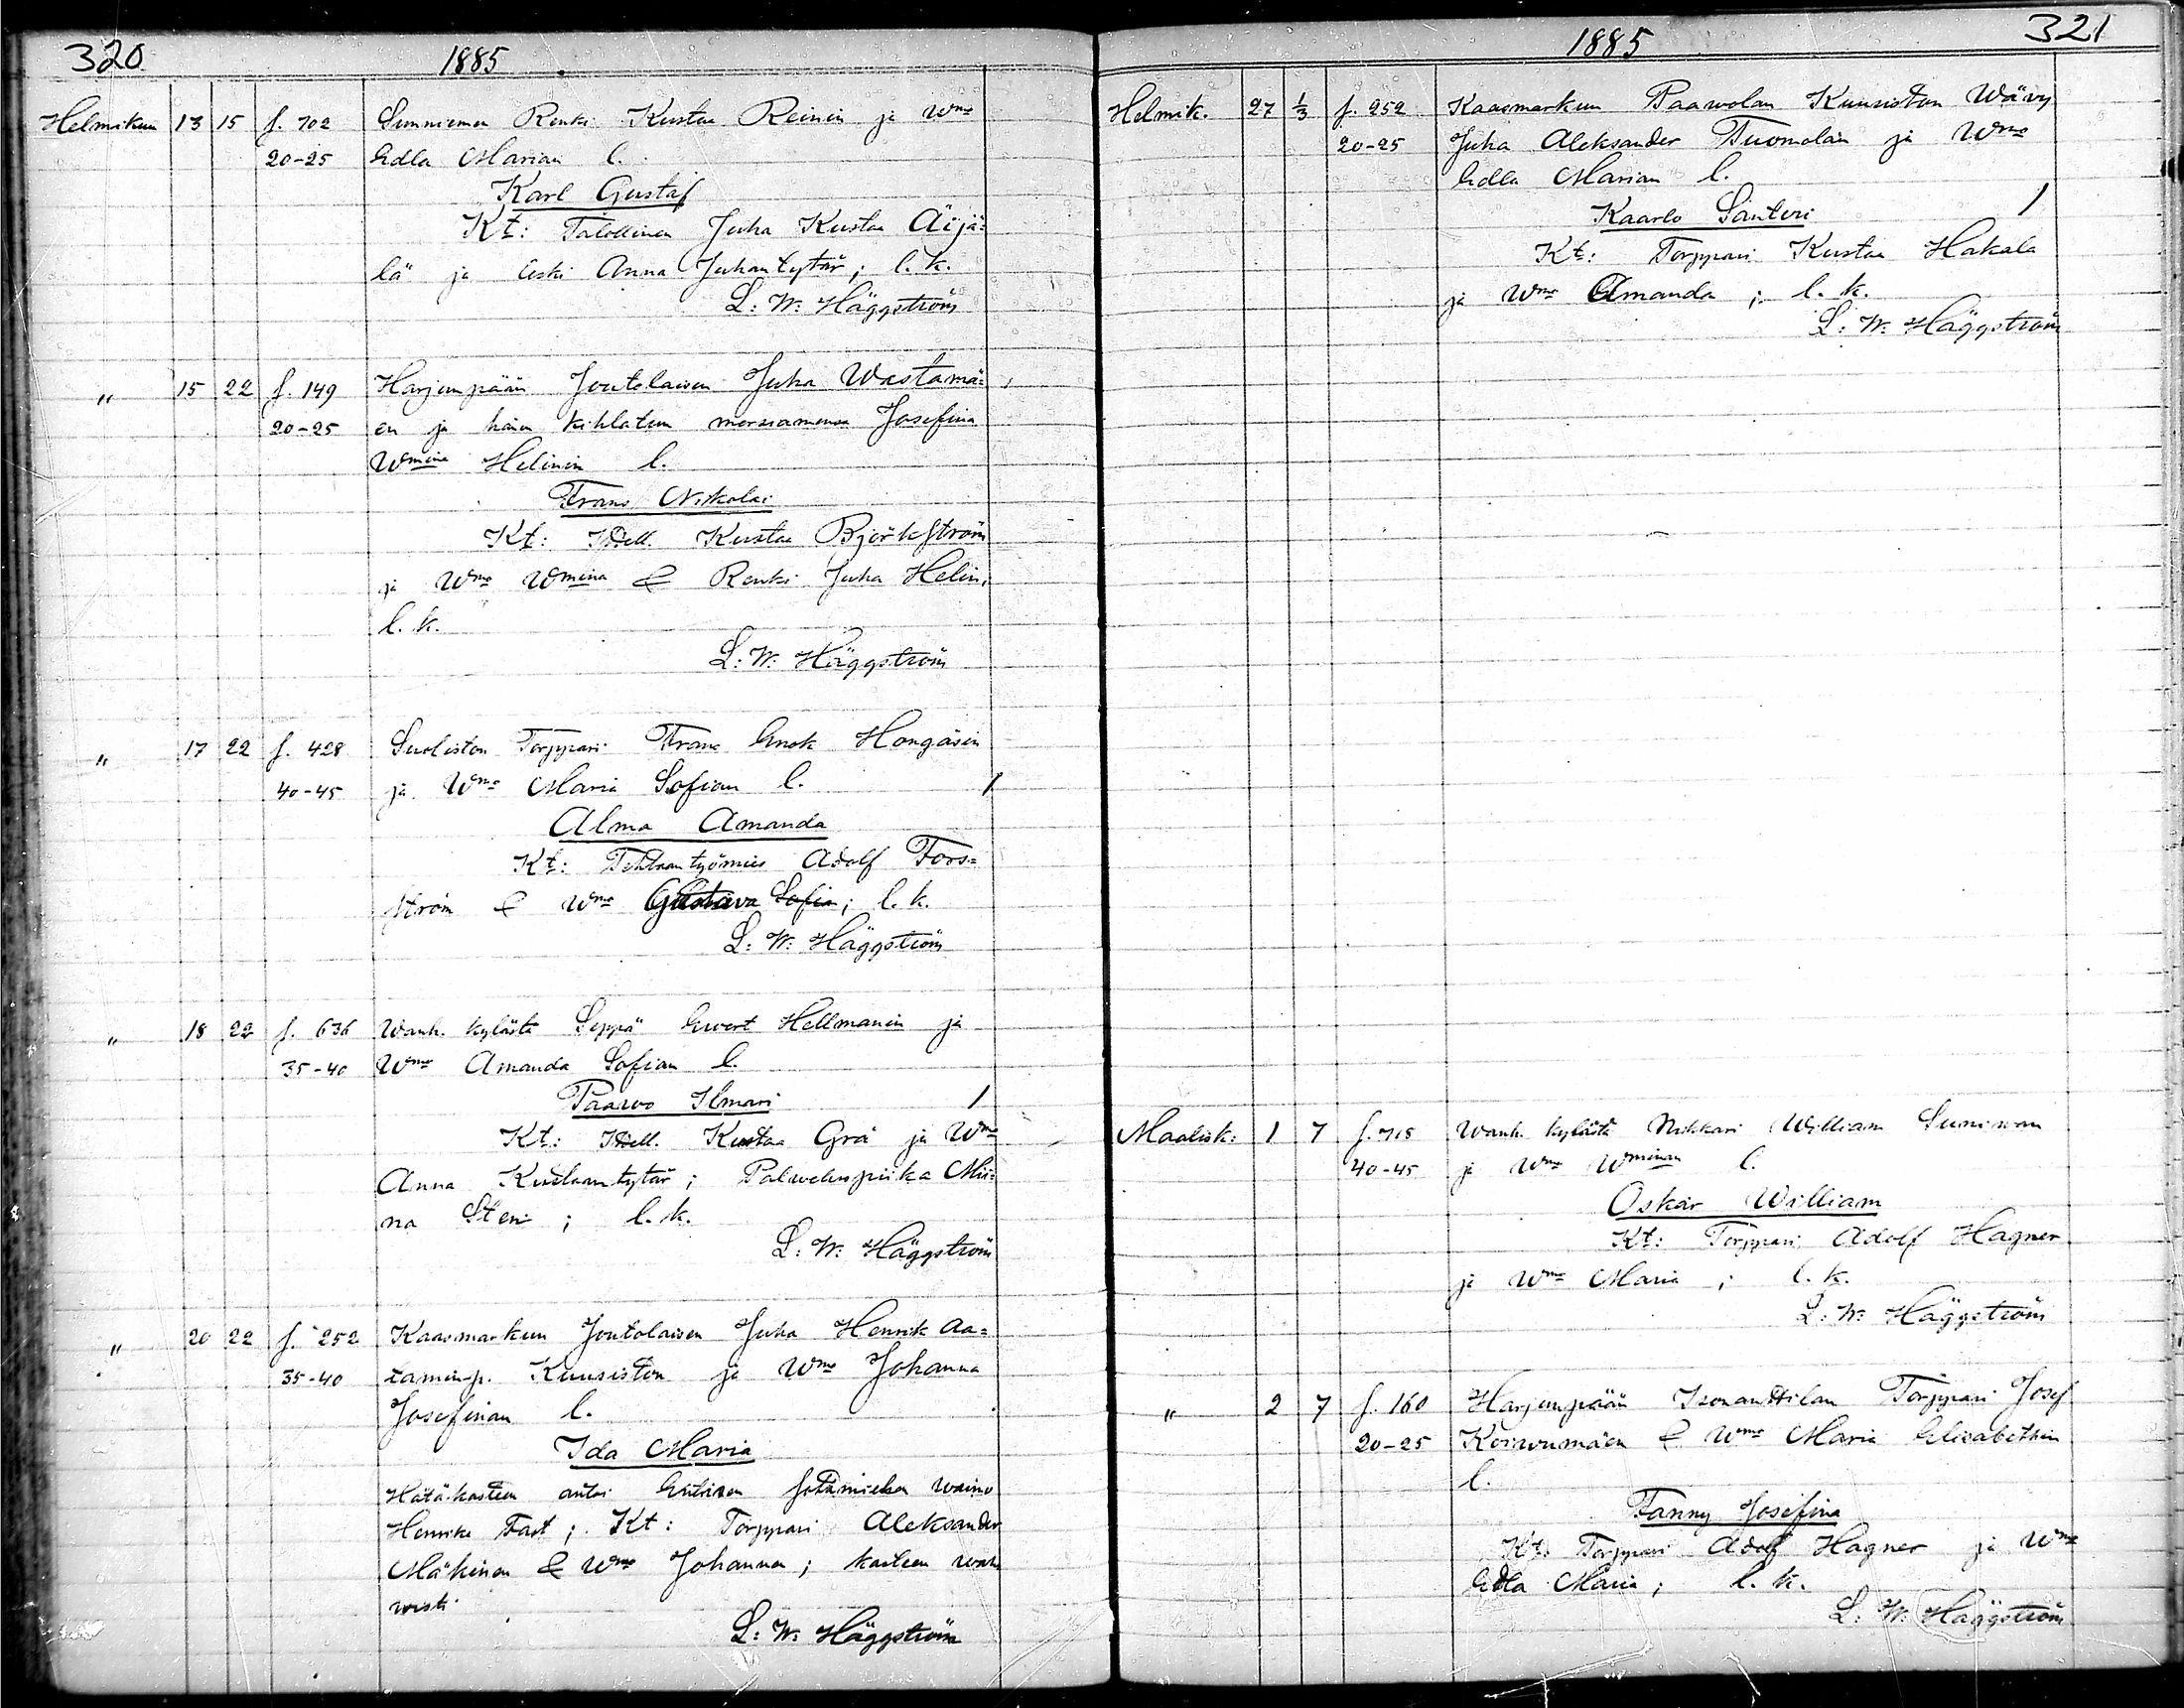 320 1885
Helmikun 13 15 f. 702 Sunniemen Renki Kustaa Reinin ja Wmo
20-25 Edla Marian l.
Karl Gustaf
Kt: Talollinen Juha Kustaa Äijä=
lä ja leski Anna Juhantytär; l. k.
L: W: Häggström
" 15 22 f. 149 Harjunpään Joutolaisen Juha Wastamä=
20-25 en ja hänen kihlatun morsiamensa Josefina
Wmina Helinin l.
Frans Nikolai
Kt: Itsell. Kustaa Björkström
ja Wmo Wmina & Renki Juha Helin,
l. k.
L: W: Häggström
" 17 22 f. 428 Suoliston Torppari Frans Enok Hongasin
40-45 ja Wmo Maria Sofian l. 1
Alma Amanda
Kt: Tehtaantyömies Adolf Fors=
ström & Wmo Gustava Sofia; l. k.
L: W: Häggström
" 18 22 f. 636 Wanh. kylästä Seppä Ewert Hellmanin ja
35-40 Wmo Amanda Sofian l.
Paavo Ilmari 1
Kt: Itsell. Kustaa Grä ja Wmo
Anna Kustaantytär; Palveluspiika Mii=
na Sten; l. k.
L: W: Häggström
" 20 22 f. 252 Kaasmarkun Joutolaisen Juha Henrik Aa=
35-40 taminp. Kuusiston ja Wmo Johanna
Josefinan l.
Ida Maria
Hätäkasteen antoi Entisen sotamiehen waimo
Henrika Fast; Kt: Torppari Aleksander
Mäkinen & Wmo Johanna; kasteen wah
wisti
L: W: Häggström
1885 321
Helmik. 27 1/3 f. 252 Kaasmarkun Paawolan Kuusiston Wävy
20-25 Juha Aleksander Tuomolan ja Wmo
Edla Marian l.
Kaarlo Santeri 1
Kt: Torppari Kustaa Hakala
ja Wmo Amanda; l. k.
L: W: Häggström
Maalisk: 1 7 f. 718 Wanh. kylästä Nikkari William Sunirvan
40-45 ja Wmo Wminan l.
Oskar William
Kt: Torppari Adolf Hagner
ja Wmo Maria; l. k.
L: W: Häggström
" 2 7 f. 160 Harjunpään Isonanttilan Torppari Josef
20-25 Koiwumäen & Wmo Maria Elisabethin
l.
Fanny Josefina
Kt: Torppari Adolf Hagner ja Wmo
Edla Maria; l. k.
L: W: Häggström